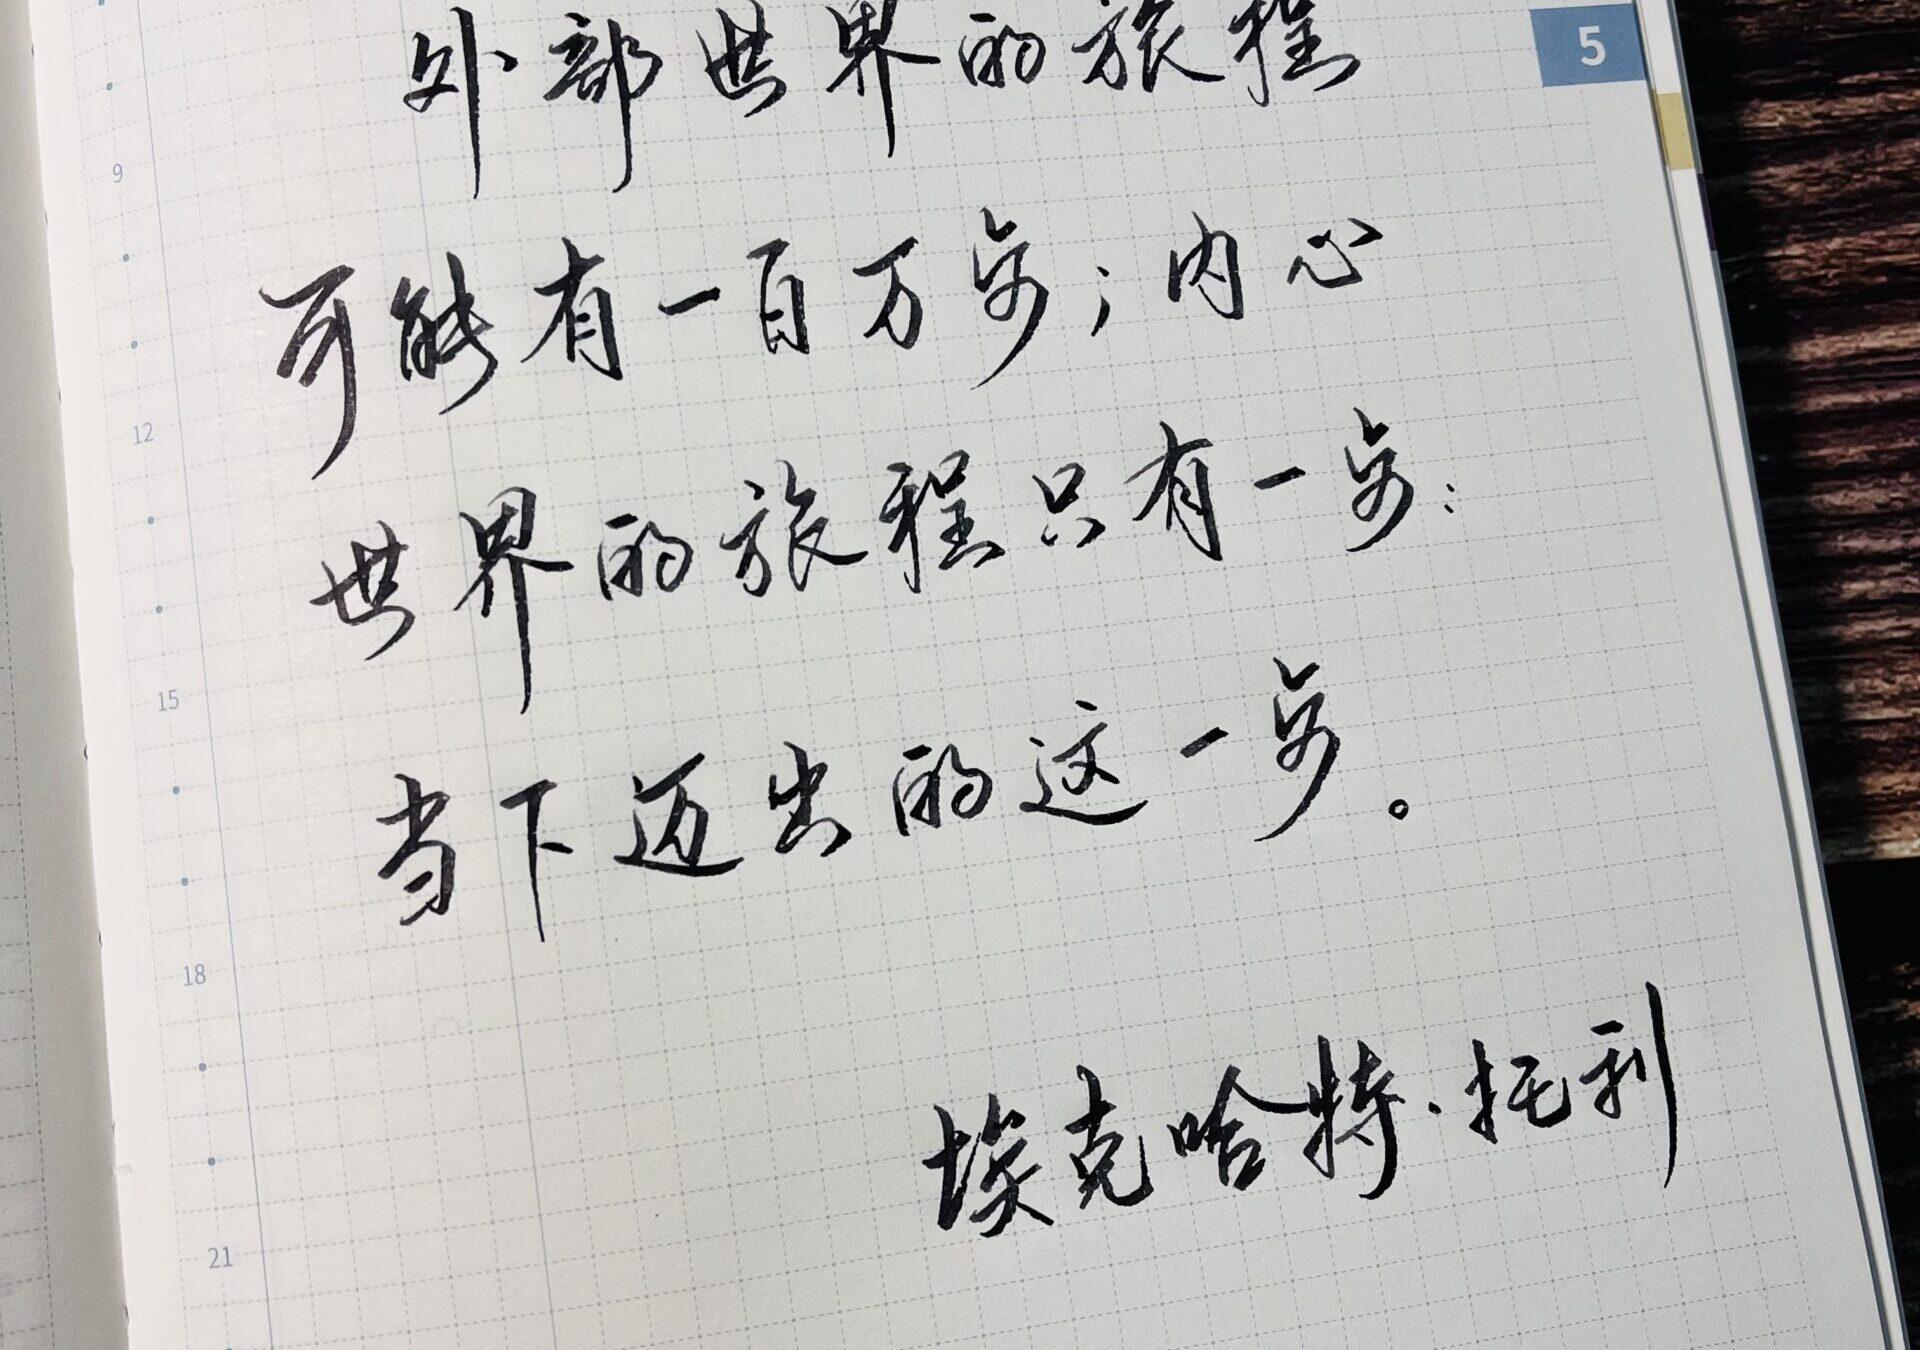 外部世界的旅程
5
9
可能有一百万步；内心
12
世界的旅程只有一步：
15
当下迈出的这一步。
18
埃克哈特·托利
21